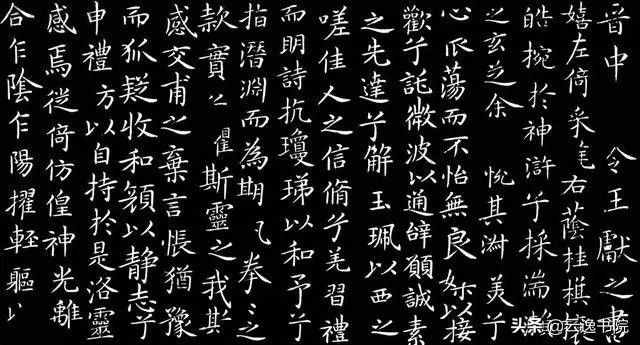 晋中 令王獻之書
嬉左倚采旄右蔭桂棋攘
皓捥於神滸兮採湍瀨
之玄芝余 悦其淑美兮
心爪蕩而不怡無良媒以接
歡兮託微波以通辞願誠素
之先達兮解玉珮以西之
嗟佳人之信脩兮羌習禮
而明詩抗瓊珶以和予兮
指潛淵而為期 拳〻之
款實 瞿斯靈之我其
感交甫之棄言悵猶豫
而狐疑收和顏以静志兮
申禮 方以自持於是洛靈
感焉徙倚仿偟神光離
合乍陰乍陽擢輕軀以
头条@云逸书院